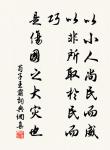 以小人尚民而威
以非所取於民而
巧
是傷國之大災也
荀子王霸詞典網集